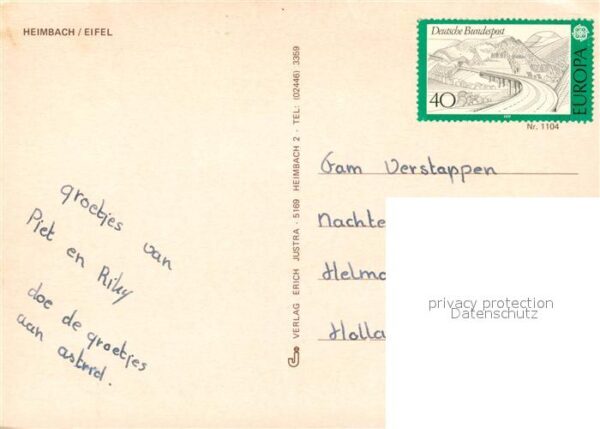 HEIMBACH / EIFEL
Deutsche Bundespost
40
EUROPA
Nr. 1104
VERLAG ERICH JUSTRA · 5169 HEIMBACH 2 · TEL: (02446) 3359
groetjes van
Piet en Riky
doe de groetjes
aan astrid.
Fam Verstappen
Nachte
Helmo
Holla
privacy protection
Datenschutz